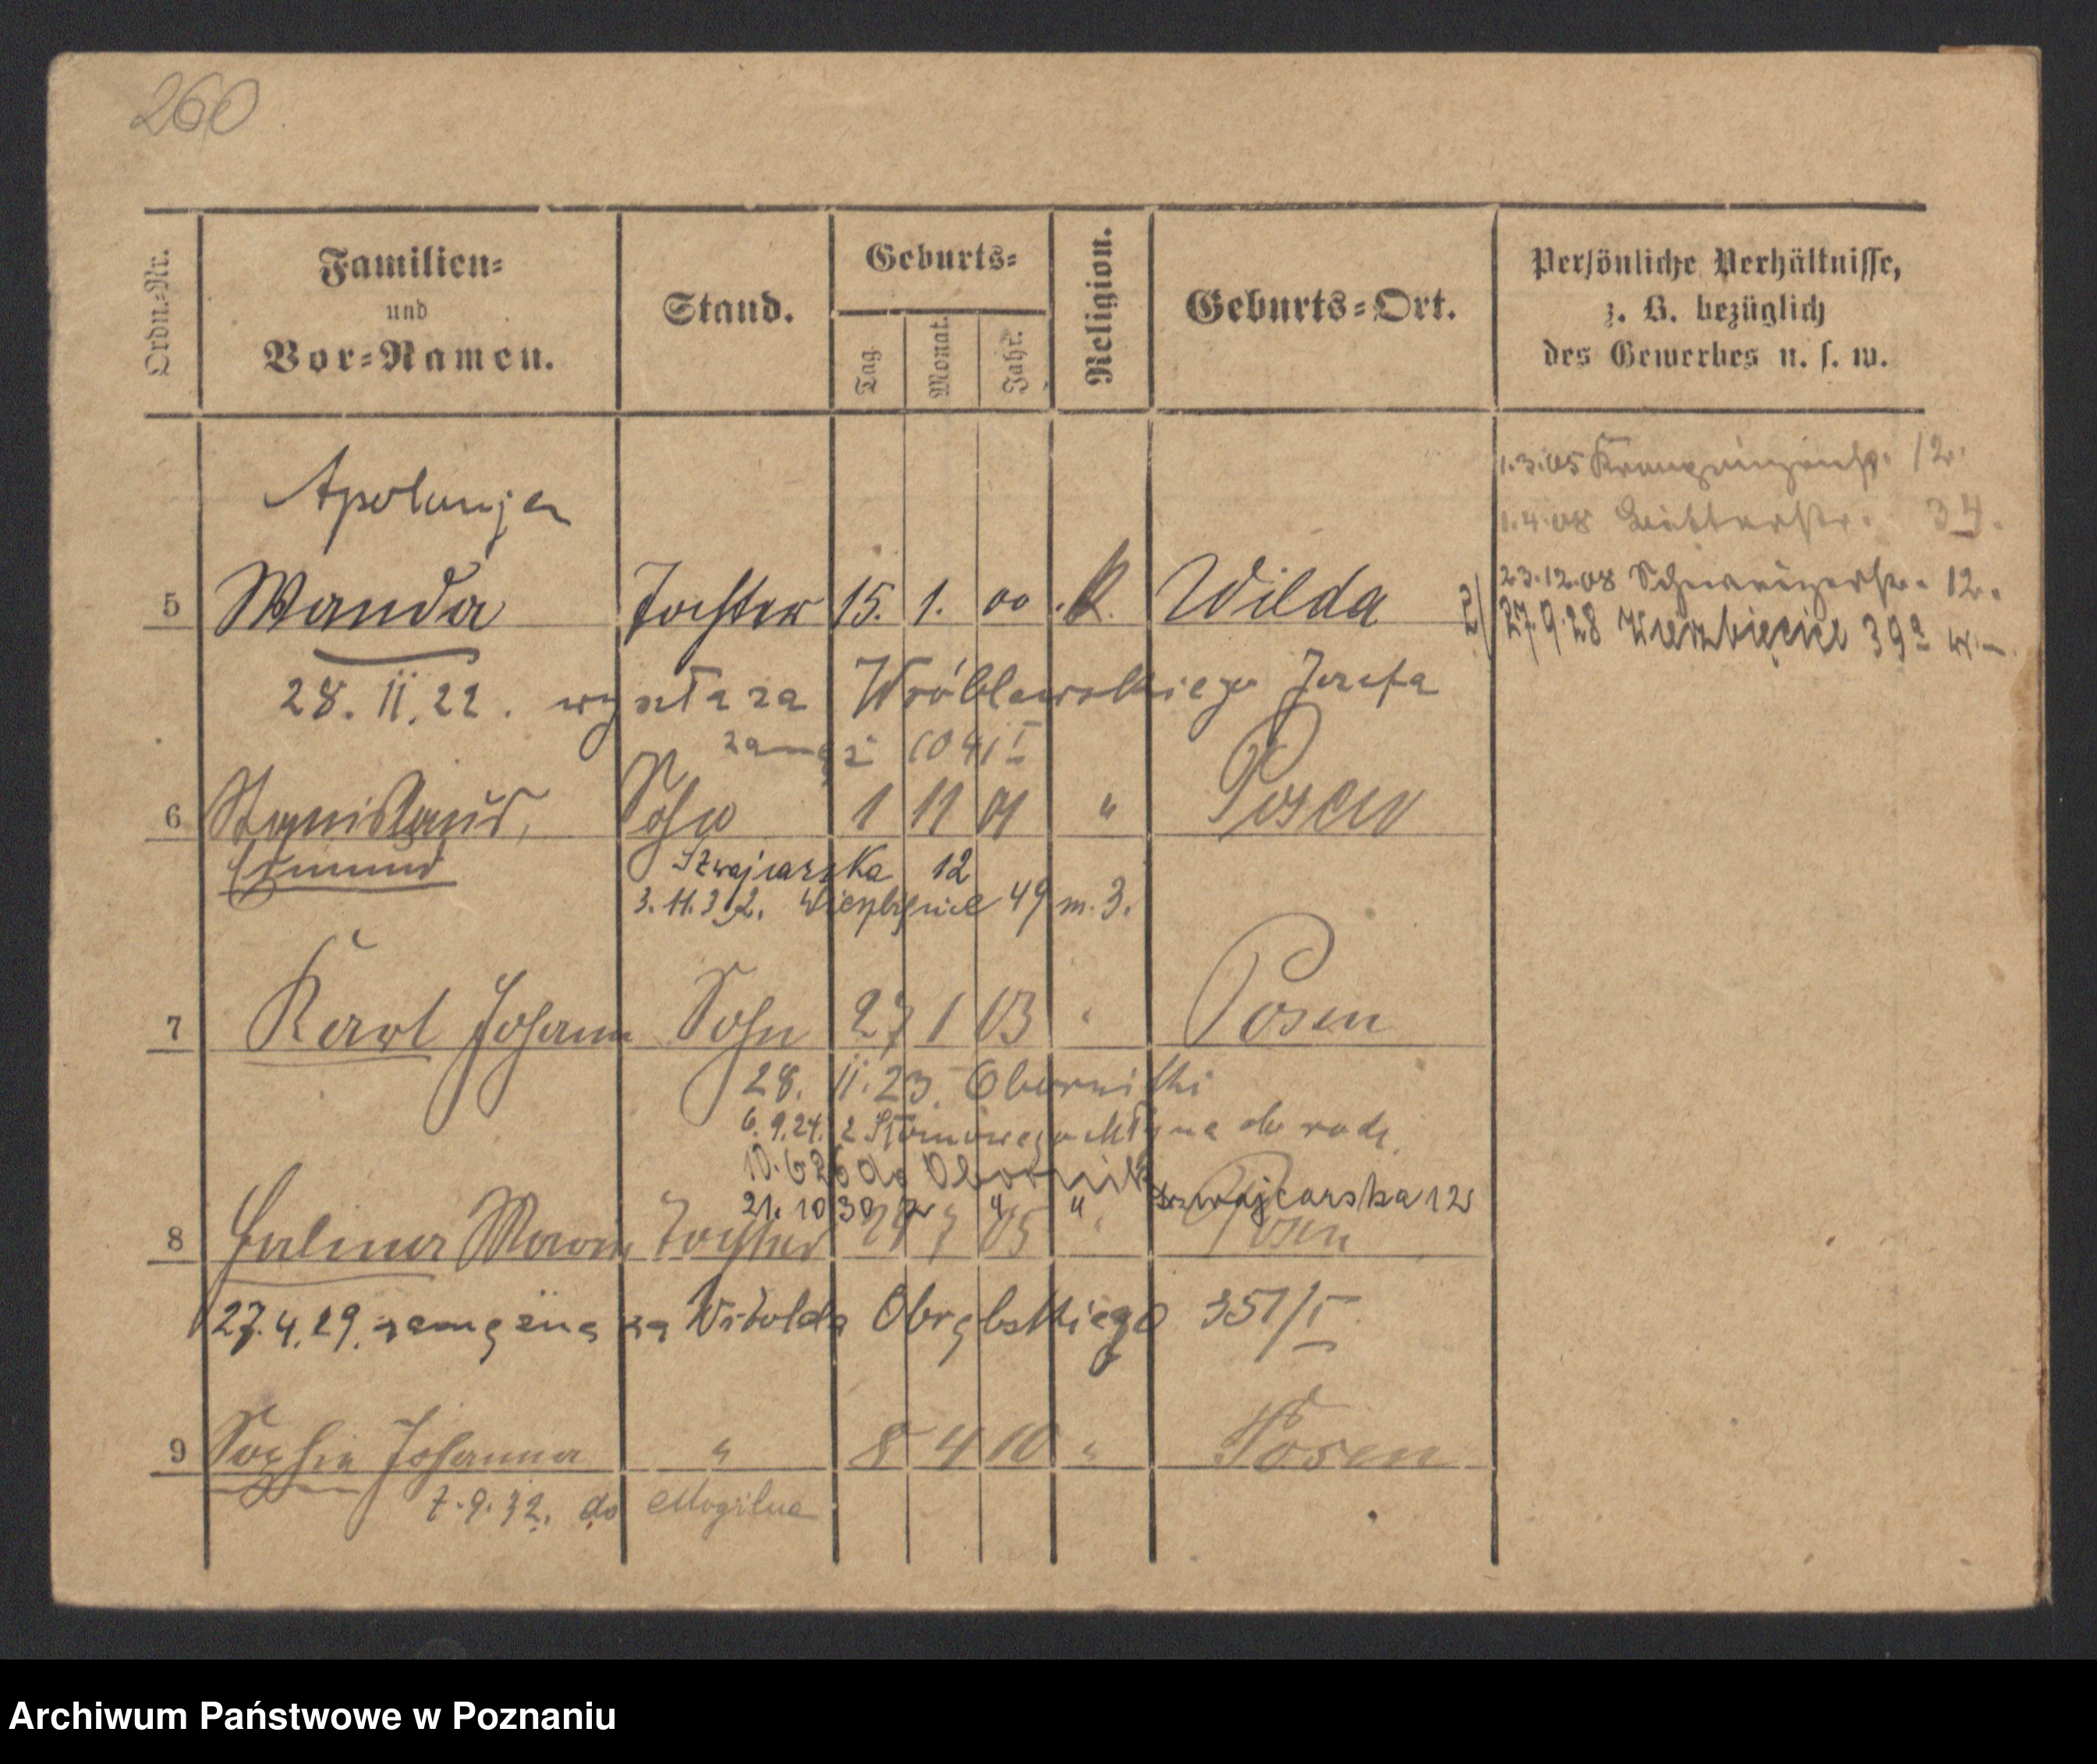 260
Ordn.-Nr.
Familien-
und
Vor-Namen.
Stand.
Geburts-
Tag
Monat.
Jahr.
Religion.
Geburts-Ort.
Persönliche Verhältnisse,
z. B. bezüglich
des Gewerbes u. s. w.
1.3.05 Kronprinzenstr. 12.
1.4.08 34.
23.12.08 Schweizerstr. 12.
27.9.28 Wierzbięcice 39a
Apolonja
5 Wanda Tochter 15. 1. 00 K. Wilda
28. II. 22. wyszła za Wróblewskiego Józefa
zamąż 1041 I
6 Stanislaus, Sohn 1 11 01 " Posen
Edmund
Szwajcarska 12
3. 11. 32. Wierzbięcice 49 m. 3.
7 Karl Johann Sohn 27 1 03 " Posen
28. II. 23. Oborniki
6. 9. 24. z Słomowego Młyna do rodz.
10. 6 26 do Obornik
21. 10 30 z " " Szwajcarska 12
8 Halina Maria Tochter 05 " Posen
27. 4. 29. zamężna za Witolda Obrębskiego 351/I
9 Sophia Johanna " 8 4 10 " Posen
7. 9. 32. do Mogilna
Archiwum Państwowe w Poznaniu